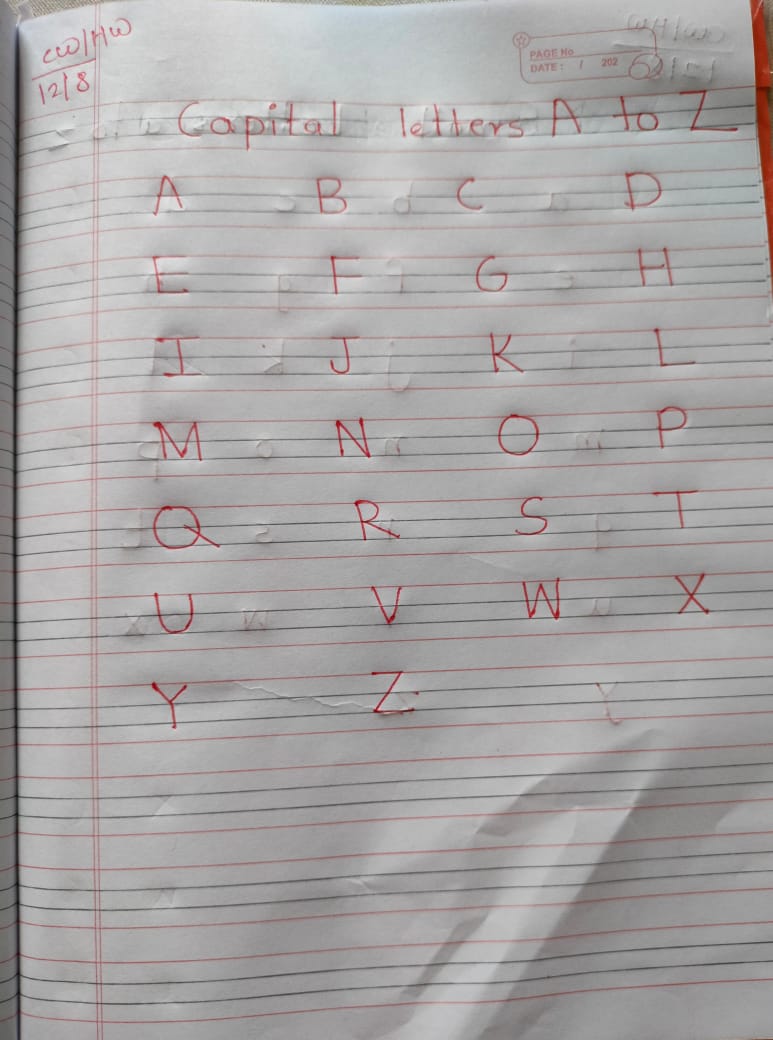 CW/HW
12/8
PAGE No
DATE: / 202
Capital letters A to Z
A B C D
E F G H
I J K L
M N O P
Q R S T
U V W X
Y Z